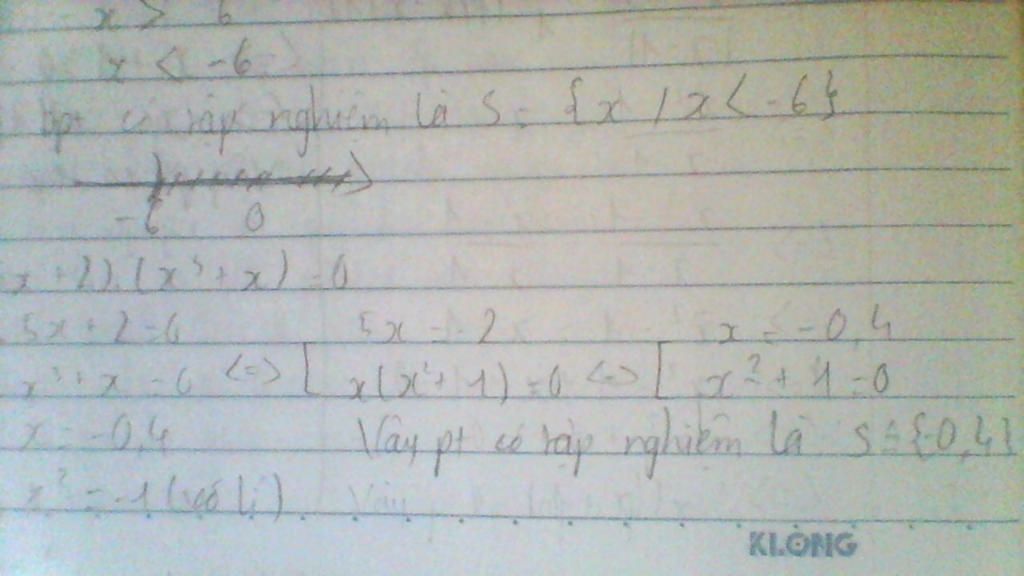 x > 6
x < -6
bpt có tập nghiệm là S = {x / x < -6}
-6 0
x + 2).(x³ + x) = 0
5x + 2 = 0 5x = -2 x = -0,4
x³ + x = 0 <=> [ x(x² + 1) = 0 <=> [ x² + 1 = 0
x = -0,4 Vậy pt có tập nghiệm là S = {-0,4}
x² = -1 (vô lí) Vậy
KLONG